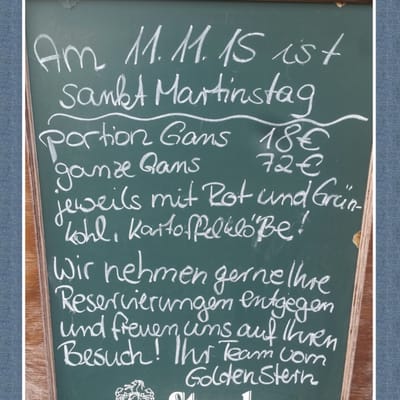 Am 11.11.15 ist
Sankt Martinstag
portion Gans 18€
ganze Gans 72€
jeweils mit Rot und Grün-
kohl, Kartoffelklöße!
Wir nehmen gerne Ihre
Reservierungen entgegen
und freuen uns auf Ihren
Besuch! Ihr Team vom
Golden Stern